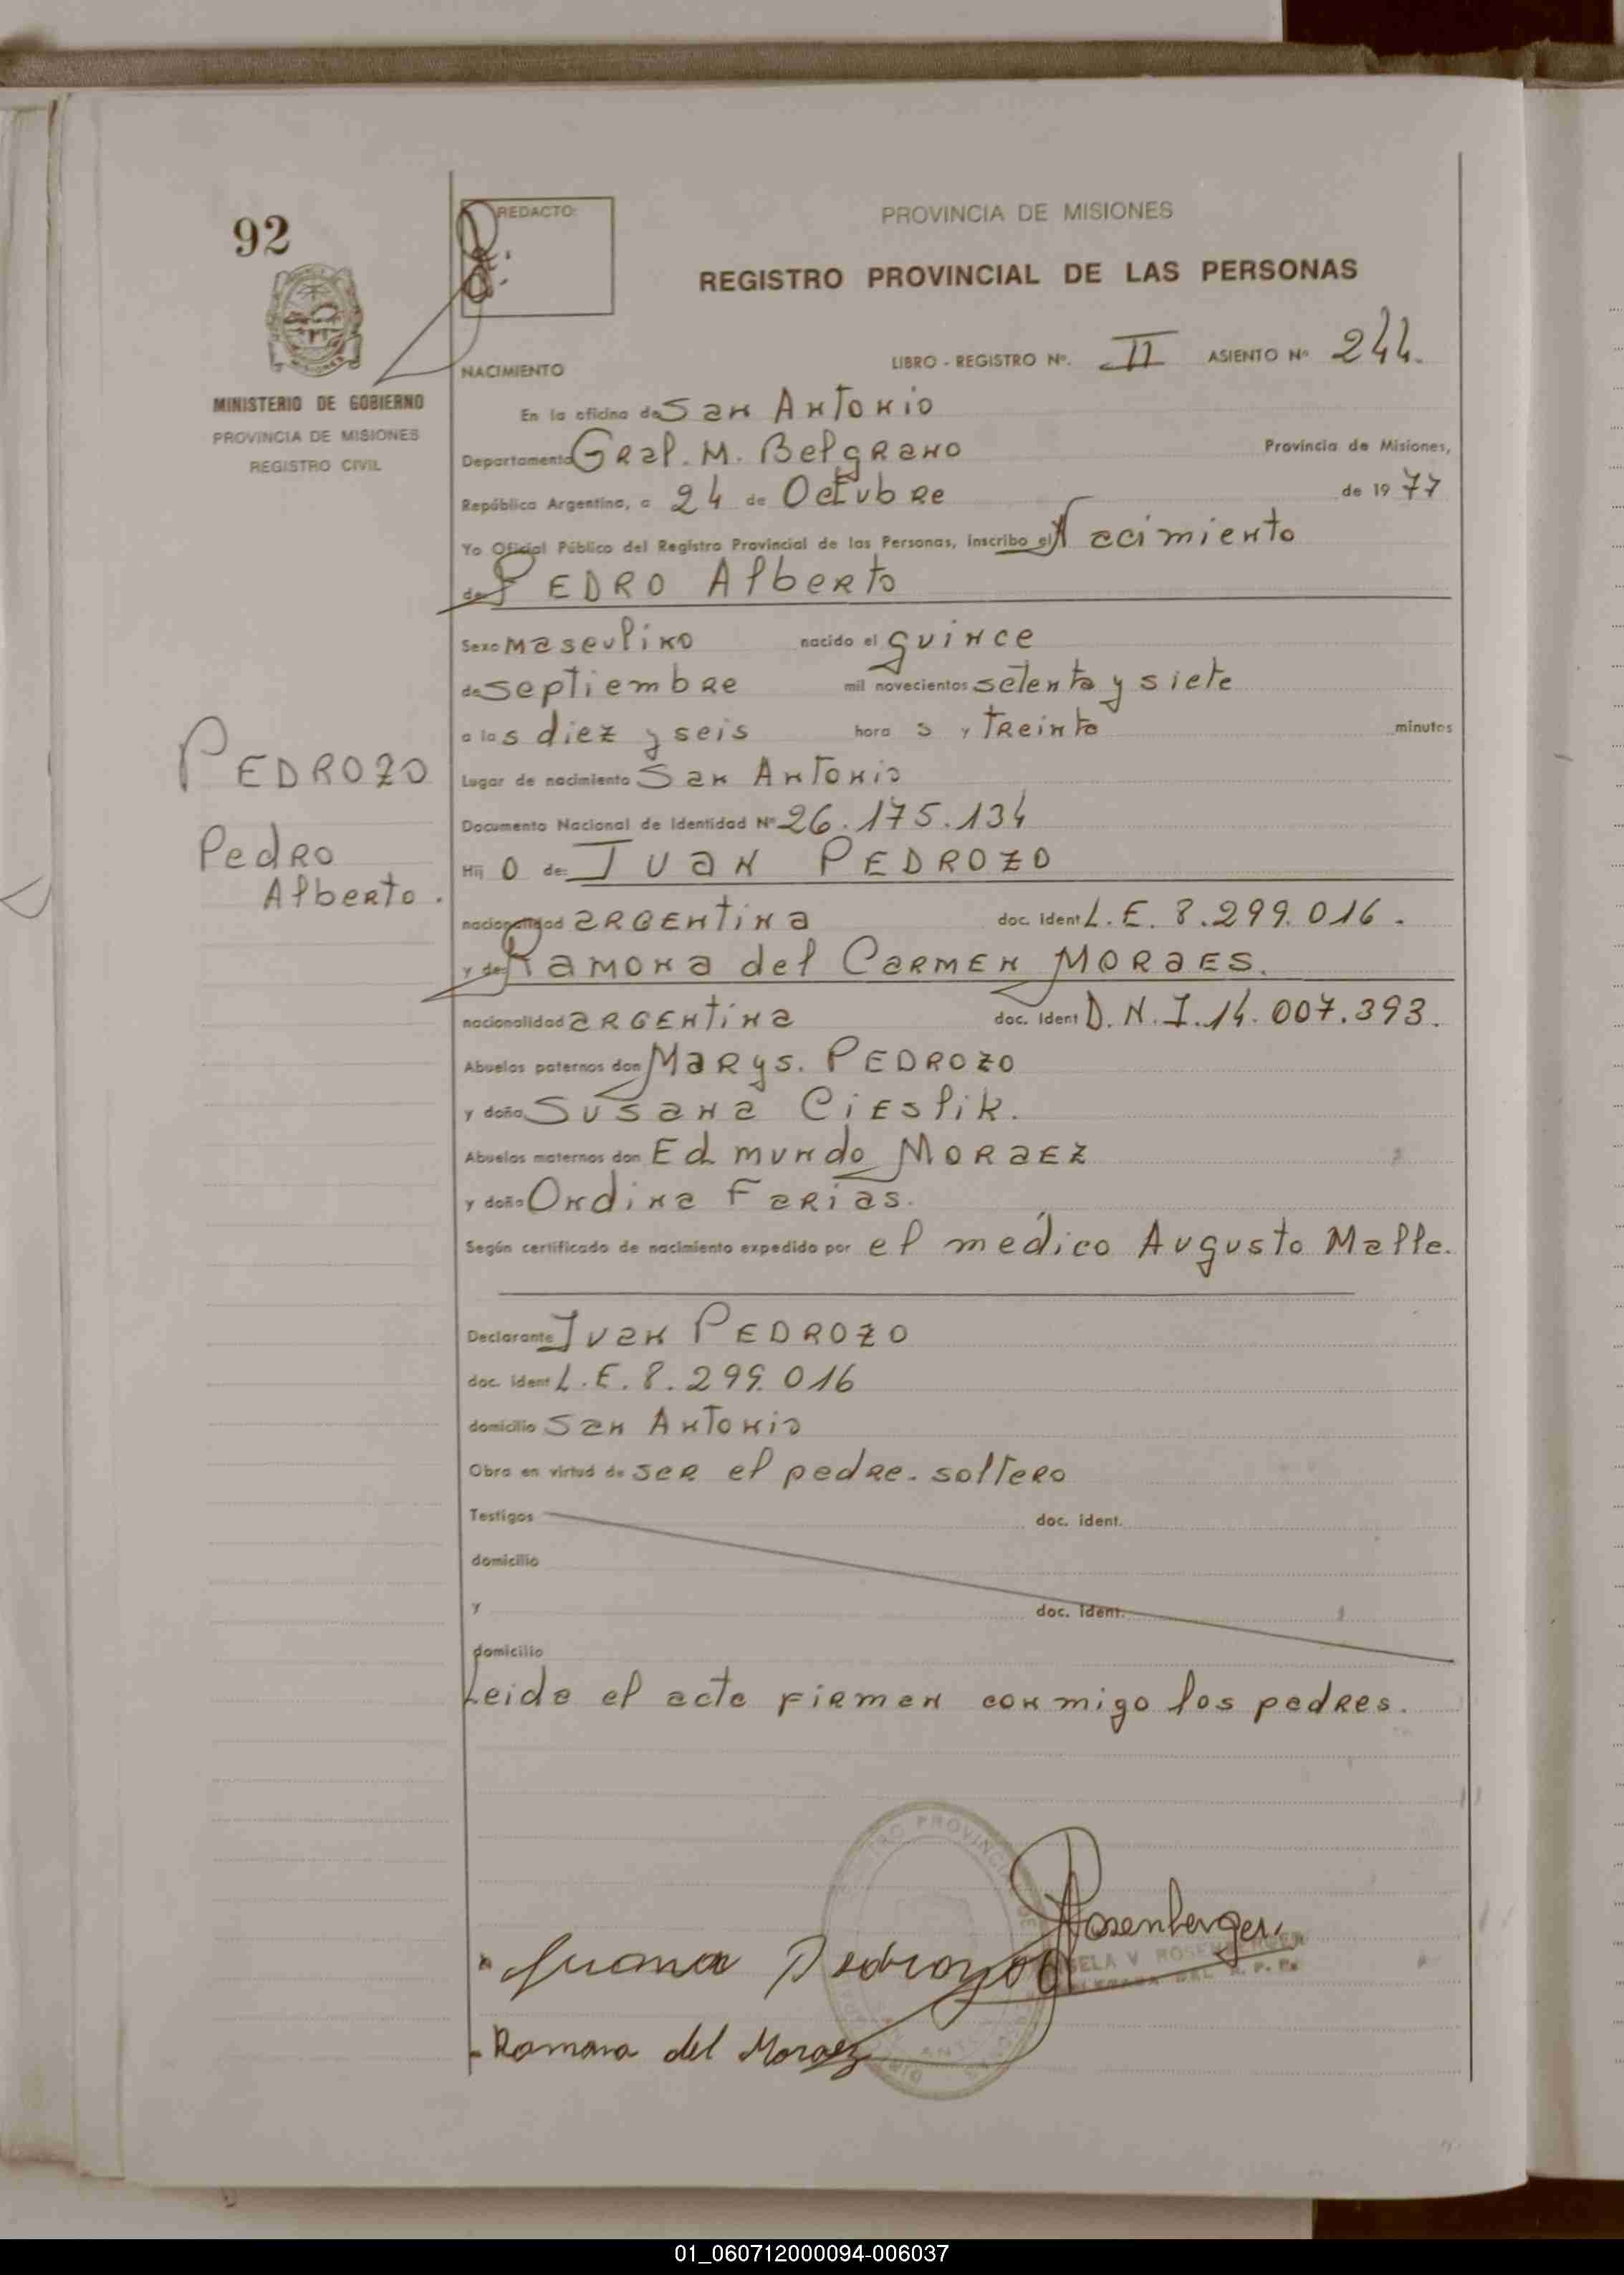 92
REDACTO:
PROVINCIA DE MISIONES
REGISTRO PROVINCIAL DE LAS PERSONAS
MISIONES
MINISTERIO DE GOBIERNO
PROVINCIA DE MISIONES
REGISTRO CIVIL
LIBRO - REGISTRO Nº. II ASIENTO Nº 244.
NACIMIENTO
En la oficina de San Antonio
Departamento Gral. M. Belgrano Provincia de Misiones,
República Argentina, a 24 de Octubre de 1977
Yo Oficial Público del Registro Provincial de las Personas, inscribo el Nacimiento
de PEDRO Alberto
Sexo masculino nacido el quince
de septiembre mil novecientos setenta y siete
a las diez y seis hora s y treinta minutos
PEDROZO
Pedro
Alberto.
Lugar de nacimiento San Antonio
Documento Nacional de Identidad Nº 26.175.134
Hij o de: Juan PEDROZO
nacionalidad argentina doc. ident L.E. 8.299.016.
y de: Ramona del Carmen MORAES.
nacionalidad argentina doc. ident D.N.I. 14.007.393.
Abuelos paternos don Marys. PEDROZO
y doña Susana Cieslik.
Abuelos maternos don Edmundo MORAEZ
y doña Ondina Farías.
Según certificado de nacimiento expedido por el médico Augusto Malle.
Declarante Juan PEDROZO
doc. ident L.E. 8.299.016
domicilio San Antonio
Obra en virtud de ser el padre. soltero
Testigos doc. ident.
domicilio
y doc. ident.
domicilio
Leida el acta firman conmigo los padres.
Rosenberger
Juana Pedrozo
SELA V ROSENBERGER
Ramona del Moraez
01_060712000094-006037